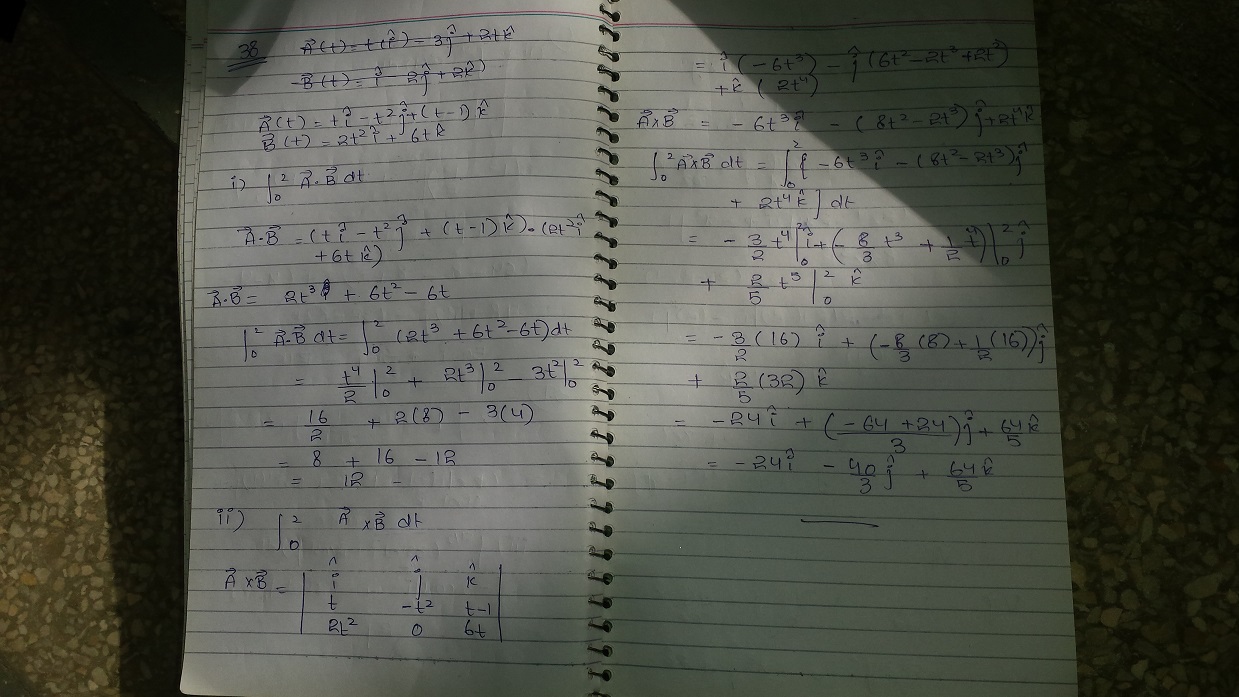 38 A⃗(t) = t(î) - 3ĵ + 2tk̂
B⃗(t) = î - 2ĵ + 2k̂)
A⃗(t) = tî - t²ĵ + (t-1)k̂
B⃗(t) = 2t²î + 6tk̂
i) ∫₀² A⃗·B⃗ dt
A⃗·B⃗ = (tî - t²ĵ + (t-1)k̂)·(2t²î
+ 6tk̂)
A⃗·B⃗ = 2t³ + 6t² - 6t
∫₀² A⃗·B⃗ dt = ∫₀² (2t³ + 6t² - 6t)dt
= t⁴/2 |₀² + 2t³|₀² - 3t²|₀²
= 16/2 + 2(8) - 3(4)
= 8 + 16 - 12
= 12
ii) ∫₀² A⃗ × B⃗ dt
A⃗ × B⃗ = | î ĵ k̂ |
| t -t² t-1 |
| 2t² 0 6t |
= î(-6t³) - ĵ(6t² - 2t³ + 2t²)
+ k̂(2t⁴)
A⃗×B⃗ = -6t³î - (8t² - 2t³)ĵ + 2t⁴k̂
∫₀² A⃗×B⃗ dt = ∫₀² [-6t³î - (8t² - 2t³)ĵ
+ 2t⁴k̂] dt
= -3/2 t⁴|₀² î + (-8/3 t³ + 1/2 t⁴)|₀² ĵ
+ 2/5 t⁵|₀² k̂
= -3/2 (16) î + (-8/3 (8) + 1/2 (16))ĵ
+ 2/5 (32) k̂
= -24î + (-64 + 24)/3 ĵ + 64/5 k̂
= -24î - 40/3 ĵ + 64/5 k̂